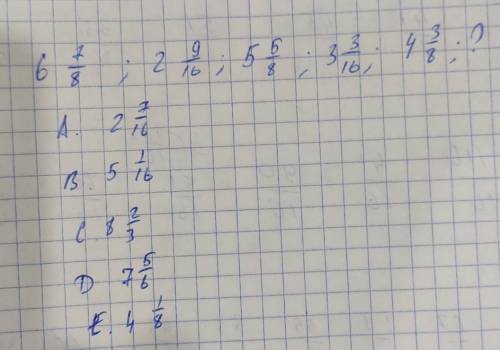 6 7/8 ; 2 9/16 ; 5 5/8 ; 3 3/16 ; 4 3/8 ; ?
A. 2 7/16
B. 5 1/16
C 8 2/3
D 7 5/6
E. 4 1/8